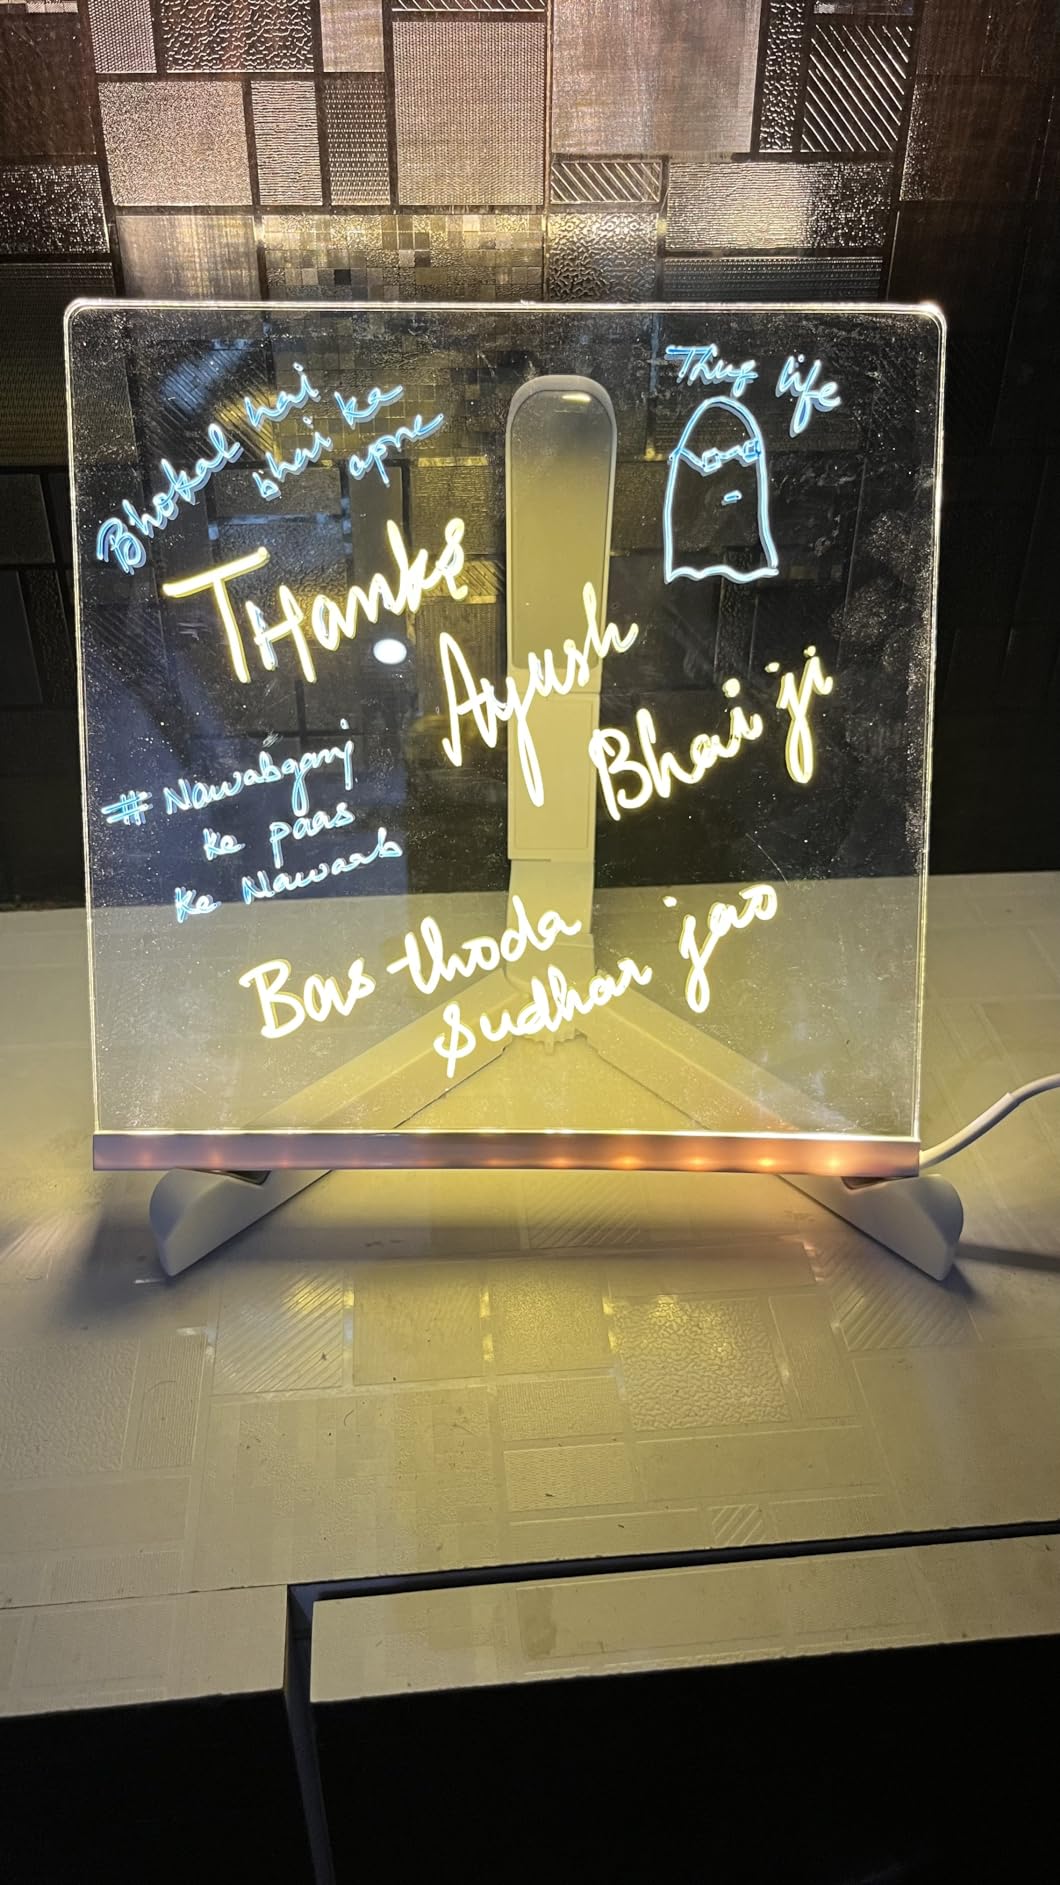 Bhokal hai
bhai ka
apne
Thug life
THanks
Ayush
Bhai ji
# Nawabganj
ke paas
ke Nawaab
Bas thoda
Sudhar jao